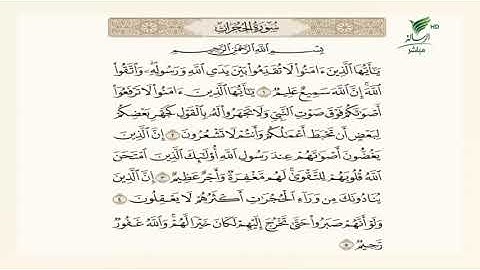 HD
الرسالة
مباشر
سُورَةُ الحُجُرَاتِ
بِسْمِ اللَّهِ الرَّحْمَٰنِ الرَّحِيمِ
يَٰٓأَيُّهَا الَّذِينَ ءَامَنُوا لَا تُقَدِّمُوا بَيْنَ يَدَيِ اللَّهِ وَرَسُولِهِۦ وَاتَّقُوا
اللَّهَ إِنَّ اللَّهَ سَمِيعٌ عَلِيمٌ ١ يَٰٓأَيُّهَا الَّذِينَ ءَامَنُوا لَا تَرْفَعُوٓا
أَصْوَٰتَكُمْ فَوْقَ صَوْتِ النَّبِيِّ وَلَا تَجْهَرُوا لَهُۥ بِالْقَوْلِ كَجَهْرِ بَعْضِكُمْ
لِبَعْضٍ أَن تَحْبَطَ أَعْمَٰلُكُمْ وَأَنتُمْ لَا تَشْعُرُونَ ٢ إِنَّ الَّذِينَ
يَغُضُّونَ أَصْوَٰتَهُمْ عِندَ رَسُولِ اللَّهِ أُولَٰٓئِكَ الَّذِينَ امْتَحَنَ
اللَّهُ قُلُوبَهُمْ لِلتَّقْوَىٰ لَهُم مَّغْفِرَةٌ وَأَجْرٌ عَظِيمٌ ٣ إِنَّ الَّذِينَ
يُنَادُونَكَ مِن وَرَآءِ الْحُجُرَٰتِ أَكْثَرُهُمْ لَا يَعْقِلُونَ ٤
وَلَوْ أَنَّهُمْ صَبَرُوا حَتَّىٰ تَخْرُجَ إِلَيْهِمْ لَكَانَ خَيْرًا لَّهُمْ وَاللَّهُ غَفُورٌ
رَّحِيمٌ ٥